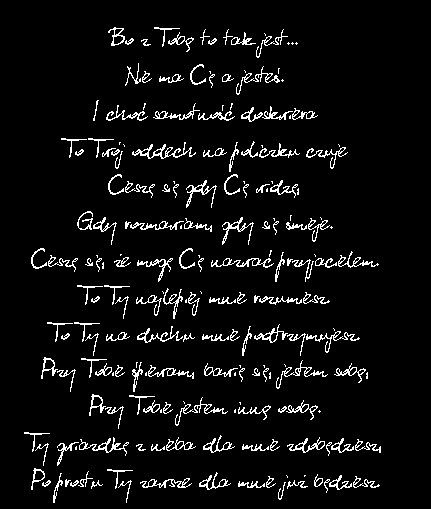 Bo z Tobą to tak jest...
Nie ma Cię a jesteś.
I choć samotność doskwiera
To Twój oddech na policzku czuje
Cieszę się gdy Cię widzę,
Gdy rozmawiam, gdy się śmieje.
Cieszę się, że mogę Cię nazwać przyjacielem.
To Ty najlepiej mnie rozumiesz
To Ty na duchu mnie podtrzymujesz
Przy Tobie śpiewam, bawię się, jestem sobą,
Przy Tobie jestem inną osobą.
Ty gwiazdkę z nieba dla mnie zdobędziesz,
Po prostu Ty zawsze dla mnie już będziesz